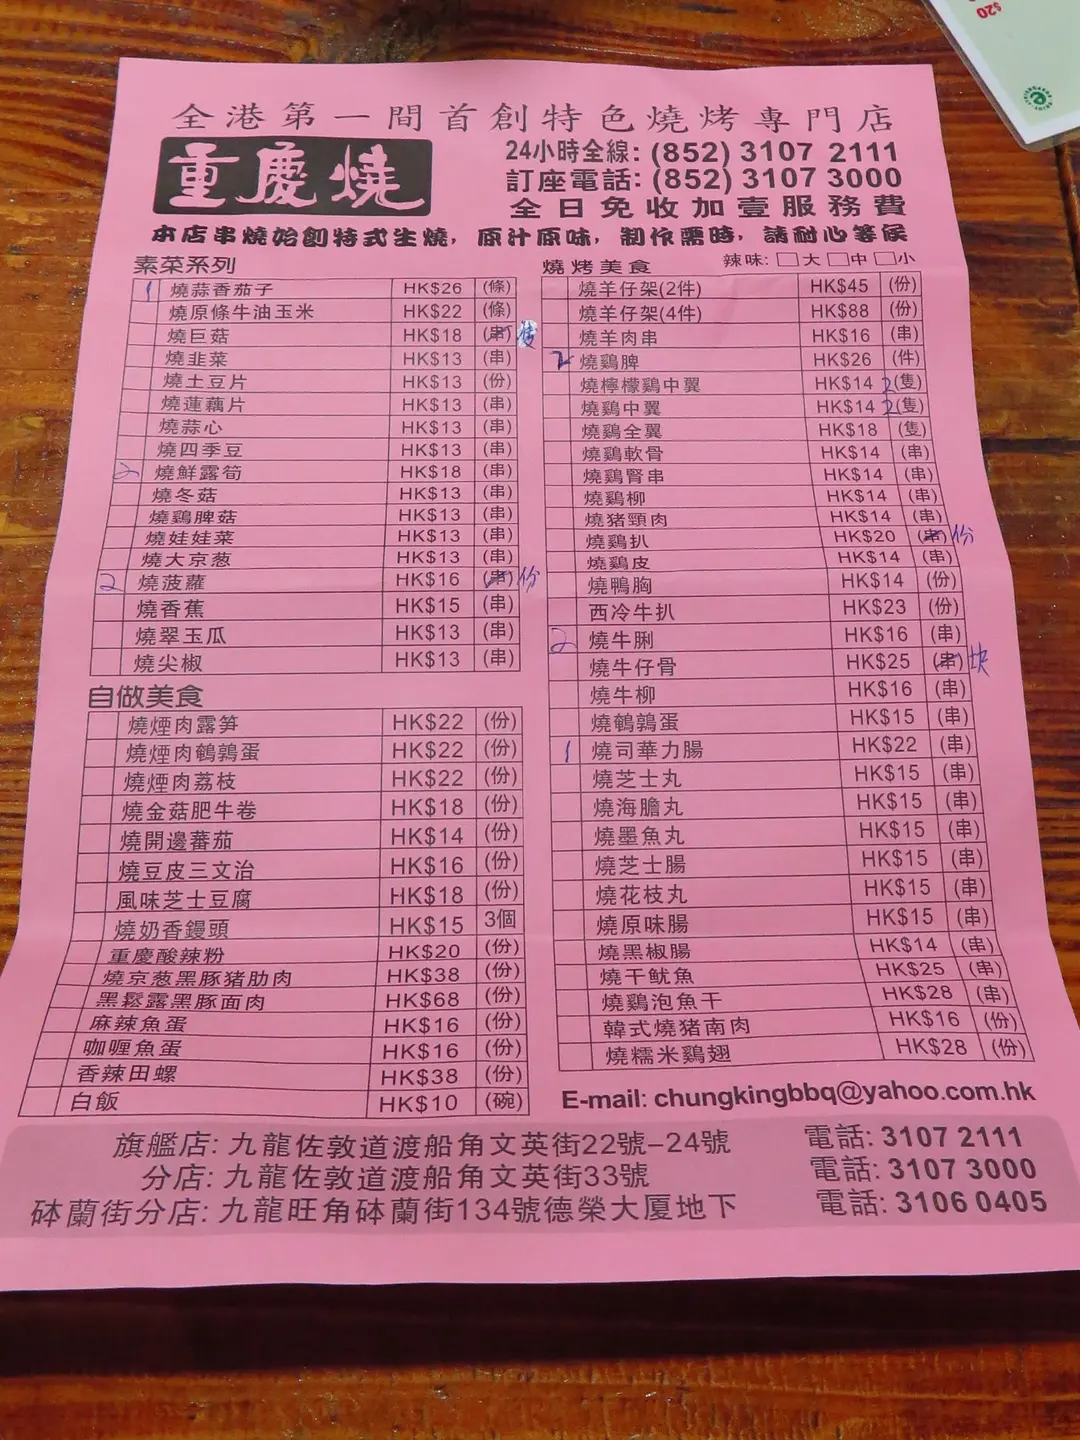 $20
全港第一間首創特色燒烤專門店
重慶燒
24小時全線: (852) 3107 2111
訂座電話: (852) 3107 3000
全日免收加壹服務費
本店串燒始創特式生燒，原汁原味，制作需時，請耐心等候
素菜系列
1 燒蒜香茄子 HK$26 (條)
燒原條牛油玉米 HK$22 (條)
燒巨菇 HK$18 (串)
燒韭菜 HK$13 (串)
燒土豆片 HK$13 (份)
燒蓮藕片 HK$13 (串)
燒蒜心 HK$13 (串)
燒四季豆 HK$13 (串)
2 燒鮮露筍 HK$18 (串)
燒冬菇 HK$13 (串)
燒鷄脾菇 HK$13 (串)
燒娃娃菜 HK$13 (串)
燒大京葱 HK$13 (串)
2 燒菠蘿 HK$16 (串) 份
燒香蕉 HK$15 (串)
燒翠玉瓜 HK$13 (串)
燒尖椒 HK$13 (串)
自做美食
燒煙肉露笋 HK$22 (份)
燒煙肉鵪鶉蛋 HK$22 (份)
燒煙肉荔枝 HK$22 (份)
燒金菇肥牛卷 HK$18 (份)
燒開邊蕃茄 HK$14 (份)
燒豆皮三文治 HK$16 (份)
風味芝士豆腐 HK$18 (份)
燒奶香饅頭 HK$15 3個
重慶酸辣粉 HK$20 (份)
燒京葱黑豚猪肋肉 HK$38 (份)
黑鬆露黑豚面肉 HK$68 (份)
麻辣魚蛋 HK$16 (份)
咖喱魚蛋 HK$16 (份)
香辣田螺 HK$38 (份)
白飯 HK$10 (碗)
燒烤美食 辣味: 大 中 小
燒羊仔架(2件) HK$45 (份)
燒羊仔架(4件) HK$88 (份)
燒羊肉串 HK$16 (串)
2 燒鷄脾 HK$26 (件)
燒檸檬鷄中翼 HK$14 2(隻)
燒鷄中翼 HK$14 2(隻)
燒鷄全翼 HK$18 (隻)
燒鷄軟骨 HK$14 (串)
燒鷄腎串 HK$14 (串)
燒鷄柳 HK$14 (串)
燒猪頸肉 HK$14 (串)
燒鷄扒 HK$20 (串) 份
燒鷄皮 HK$14 (串)
燒鴨胸 HK$14 (份)
西冷牛扒 HK$23 (份)
2 燒牛脷 HK$16 (串)
燒牛仔骨 HK$25 (串) 块
燒牛柳 HK$16 (串)
燒鵪鶉蛋 HK$15 (串)
1 燒司華力腸 HK$22 (串)
燒芝士丸 HK$15 (串)
燒海膽丸 HK$15 (串)
燒墨魚丸 HK$15 (串)
燒芝士腸 HK$15 (串)
燒花枝丸 HK$15 (串)
燒原味腸 HK$15 (串)
燒黑椒腸 HK$14 (串)
燒干魷魚 HK$25 (串)
燒鷄泡魚干 HK$28 (串)
韓式燒猪南肉 HK$16 (份)
燒糯米鷄翅 HK$28 (份)
E-mail: chungkingbbq@yahoo.com.hk
旗艦店: 九龍佐敦道渡船角文英街22號-24號 電話: 3107 2111
分店: 九龍佐敦道渡船角文英街33號 電話: 3107 3000
砵蘭街分店: 九龍旺角砵蘭街134號德榮大厦地下 電話: 3106 0405